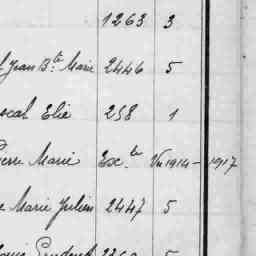 1263 3
f Jean Bte Marie 2446 5
scal Elie 258 1
ierre Marie Ex.te Vu 1914-1917
e Marie Julien 2447 5
5